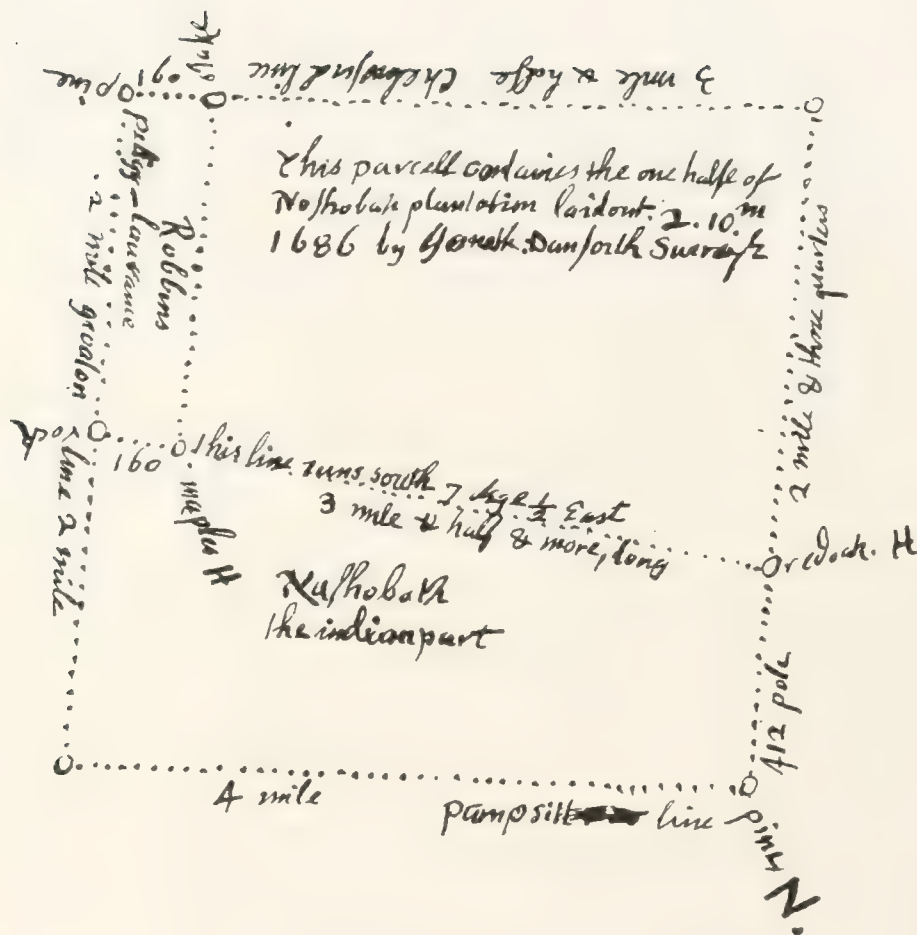 3 mile & halfe Chelmsford line
pine
160
This parcell containes the one halfe of
Nashobah plantation laid out. 2.10.m
1686 by Jonath. Danforth Survey
Robbins
Peleg Laurance
2 mile groaton
line 2 mile
2 mile & three quarters
rock
160
maple H
This line runs south 7 dege ½ East
3 mile & half & more, long
redoak. H
Nashobath
the indian part
412 pole
4 mile
pampsitt line
pine
N.